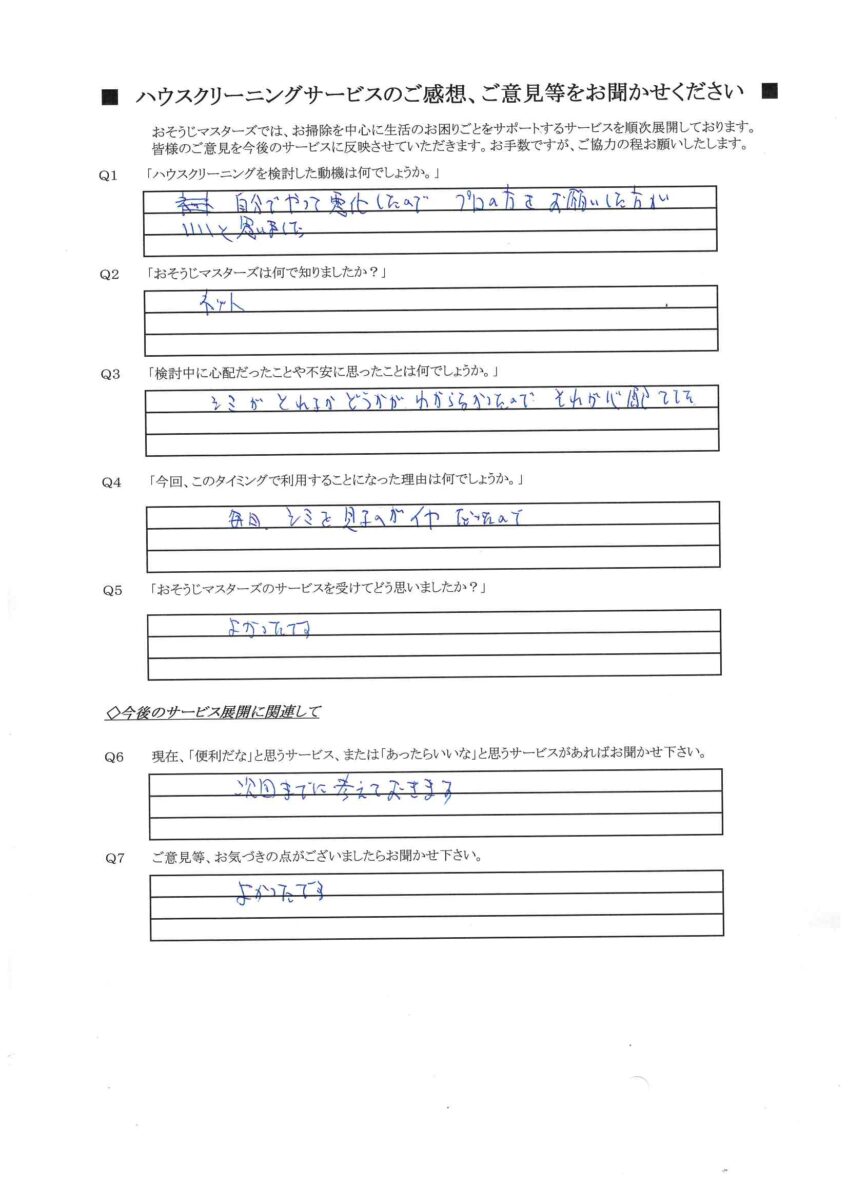 ■ ハウスクリーニングサービスのご感想、ご意見等をお聞かせください ■
おそうじマスターズでは、お掃除を中心に生活のお困りごとをサポートするサービスを順次展開しております。
皆様のご意見を今後のサービスに反映させていただきます。お手数ですが、ご協力の程お願いしたします。
Q1 「ハウスクリーニングを検討した動機は何でしょうか。」
自分でやって悪化したので プロの方を お願いした方が
いいと思いました
Q2 「おそうじマスターズは何で知りましたか？」
ネット
Q3 「検討中に心配だったことや不安に思ったことは何でしょうか。」
シミが とれるか どうかが わからなかったので それが心配でした
Q4 「今回、このタイミングで利用することになった理由は何でしょうか。」
毎日、シミを 見るのがイヤ だったので
Q5 「おそうじマスターズのサービスを受けてどう思いましたか？」
よかったです
◇今後のサービス展開に関連して
Q6 現在、「便利だな」と思うサービス、または「あったらいいな」と思うサービスがあればお聞かせ下さい。
次回までに 考えておきます
Q7 ご意見等、お気づきの点がございましたらお聞かせ下さい。
よかったです